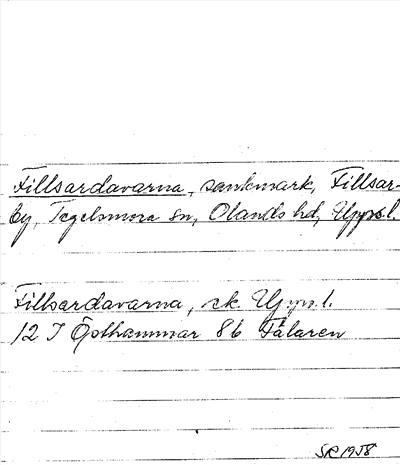 Fillsardavarna, sankmark, Fillsar-
by, Tegelsmora sn, Olands hd, Uppsl.
Fillsardavarna, ek. Upps.l.
12 I Östhammar 8b Fålaren
SR 1958